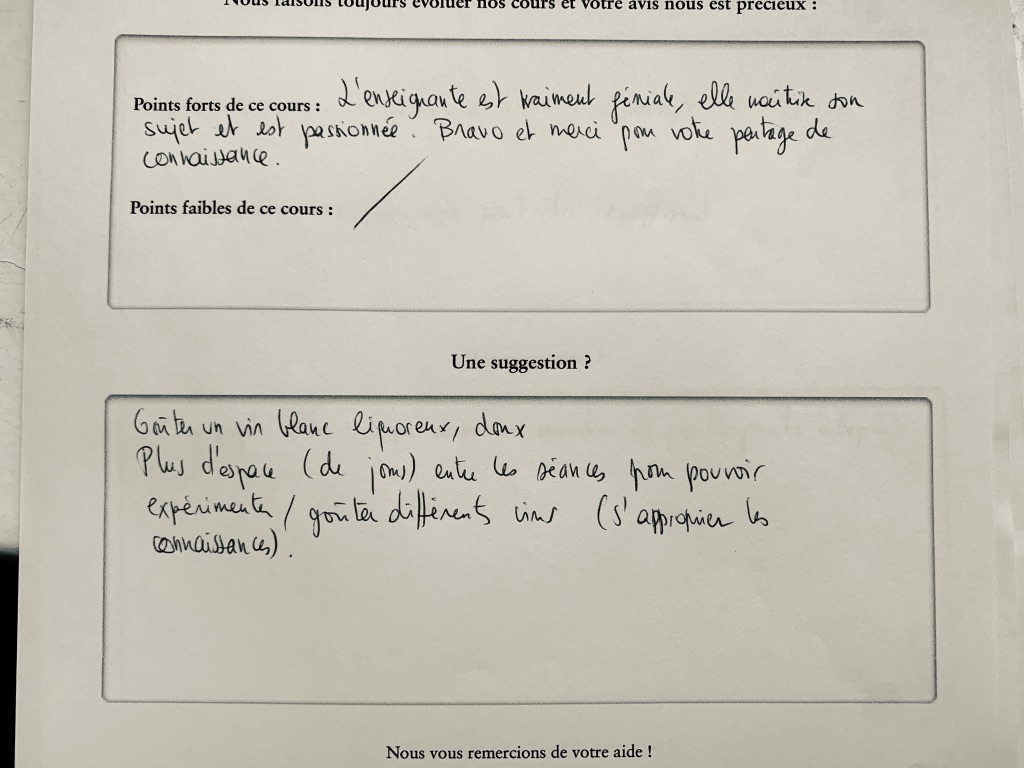 Nous faisons toujours évoluer nos cours et votre avis nous est précieux :
Points forts de ce cours : L'enseignante est vraiment géniale, elle maîtrise son
sujet et est passionnée. Bravo et merci pour votre partage de
connaissance.
Points faibles de ce cours : /
Une suggestion ?
Goûter un vin blanc liquoreux, doux
Plus d'espace (de jours) entre les séances pour pouvoir
expérimenter / goûter différents vins (s'approprier les
connaissances).
Nous vous remercions de votre aide !